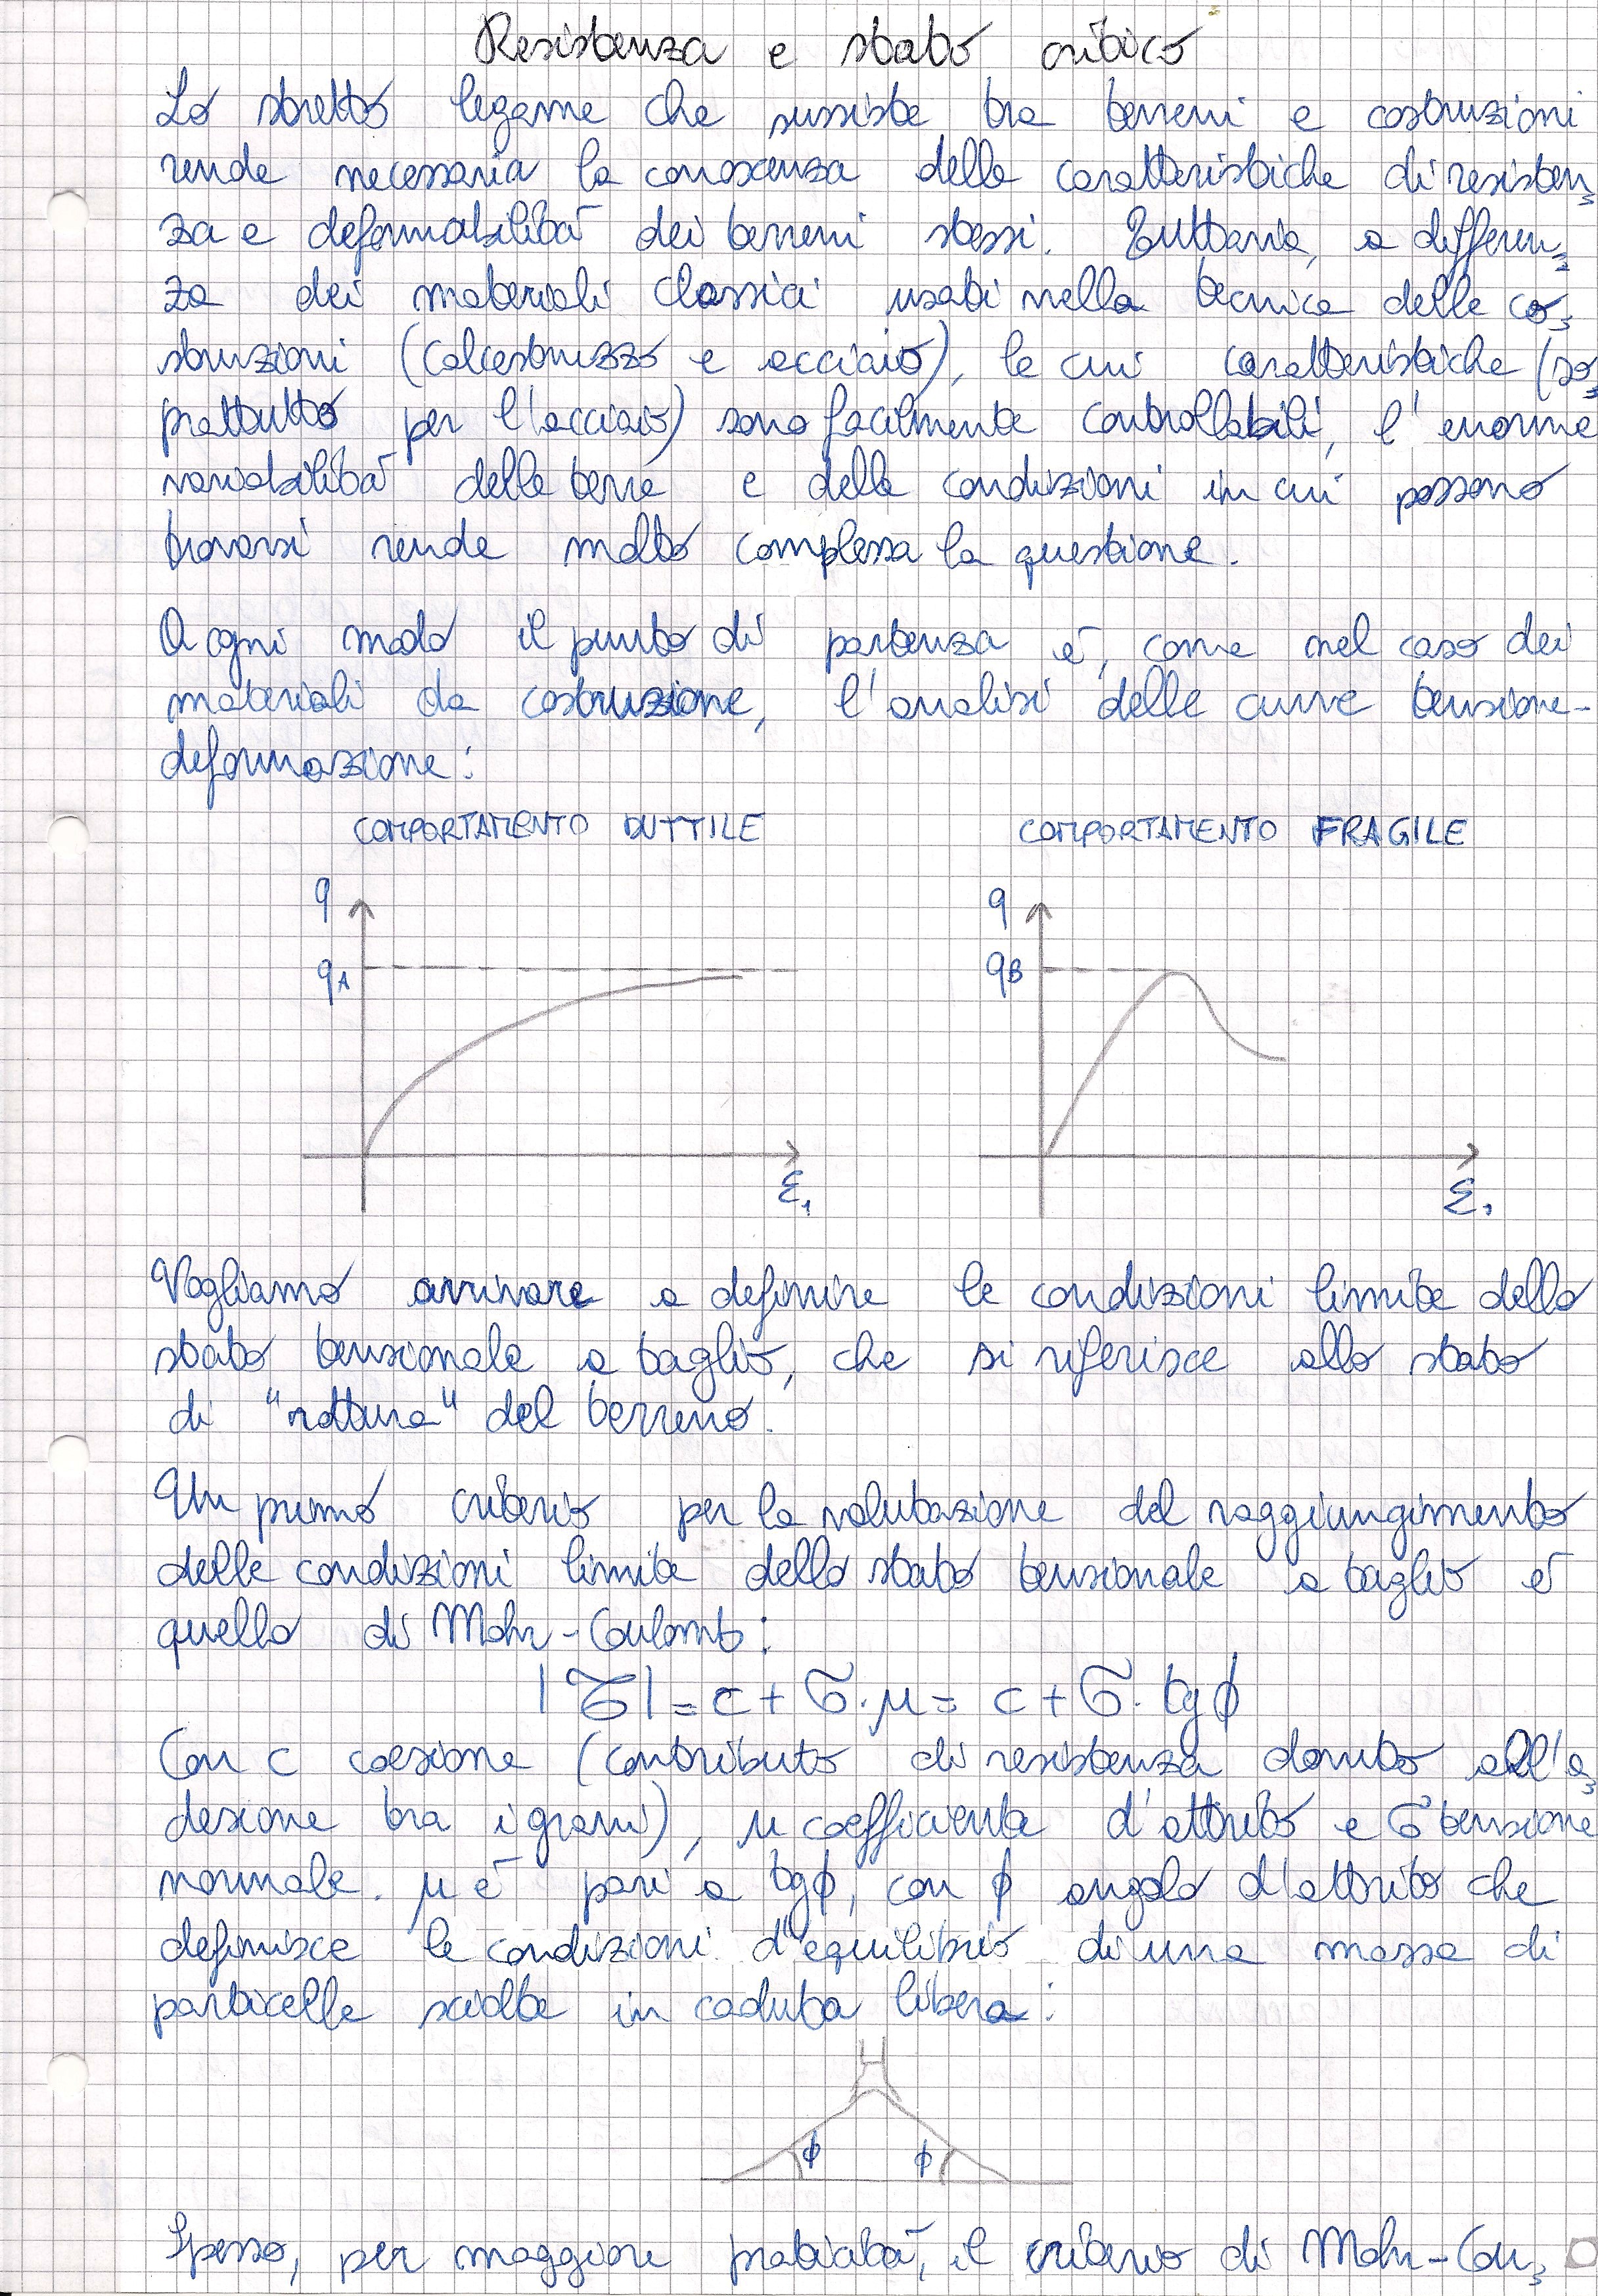 Resistenza e stato critico
Lo stretto legame che sussiste tra terreni e costruzioni
rende necessaria la conoscenza delle caratteristiche di resisten
za e deformabilità dei terreni stessi. Tuttavia, a differen
za dei materiali classici usati nella tecnica delle co
struzioni (calcestruzzo e acciaio), le cui caratteristiche (so
prattutto per l'acciaio) sono facilmente controllabili, l'enorme
variabilità delle terre e delle condizioni in cui possono
trovarsi rende molto complessa la questione.
A ogni modo il punto di partenza è, come nel caso dei
materiali da costruzione, l'analisi delle curve tensione-
deformazione:
COMPORTAMENTO DUTTILE COMPORTAMENTO FRAGILE
q q
qA qB
ε1 ε1
Vogliamo arrivare a definire le condizioni limite dello
stato tensionale a taglio, che si riferisce allo stato
di "rottura" del terreno.
Un primo criterio per la valutazione del raggiungimento
delle condizioni limite dello stato tensionale a taglio è
quello di Mohr-Coulomb:
|τ| = c + σ·μ = c + σ·tgϕ
Con c coesione (contributo di resistenza dovuto all'a
desione tra i grani), μ coefficiente d'attrito e σ tensione
normale. μ è pari a tgϕ, con ϕ angolo d'attrito che
definisce le condizioni d'equilibrio di una massa di
particelle sciolte in caduta libera:
ϕ ϕ
Spesso, per maggiore praticità, il criterio di Mohr-Cou